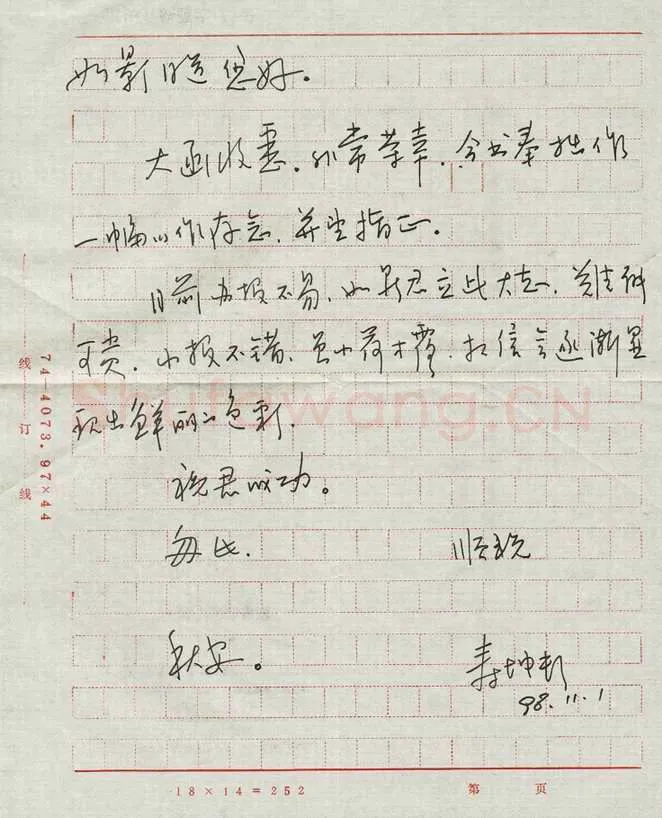 如影同道您好。
大函收悉，非常荣幸，今书奉拙作
一幅以作存念，并望指正。
目前办报不易，如影君立此大志，难能
可贵，小报不错，虽小荷才露，相信会逐渐呈
现出鲜丽之色彩，
祝君成功。
匆此，　　　　顺祝
秋安。
98.11.1
线 订 线
74-4073.97×44
Shufawang.CN
18×14=252　　第　页